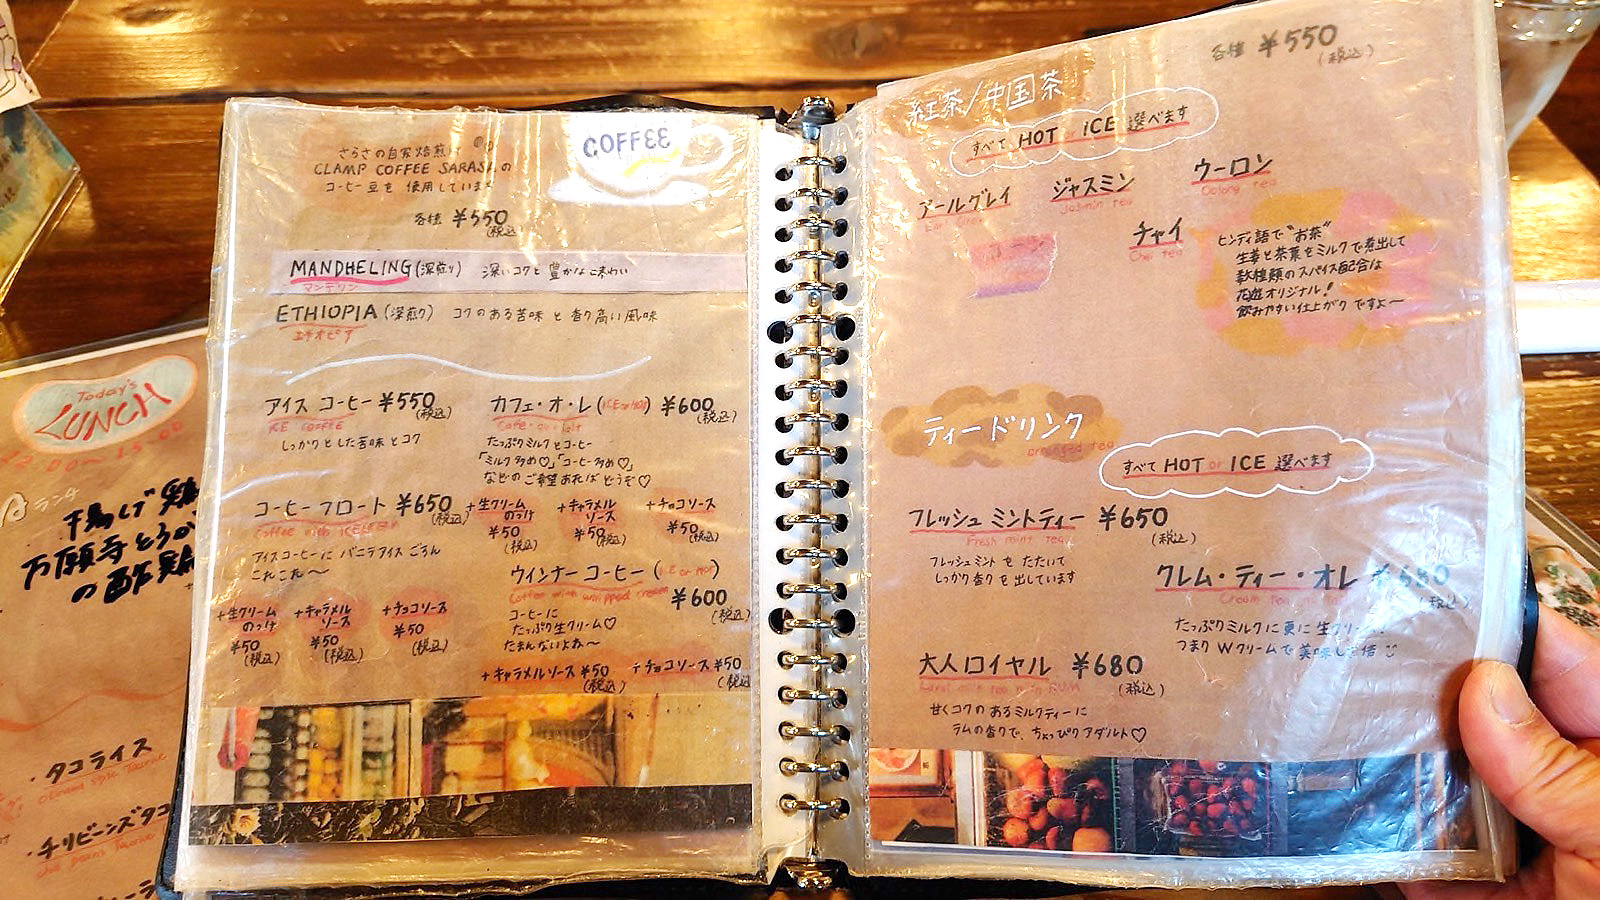 COFFEE
さらさの自家焙煎け
CLAMP COFFEE SARASA の
コーヒー豆を 使用しています
各種 ¥550
(税込)
MANDHELING (深煎り) 深いコクと豊かな味わい
マンデリン
ETHIOPIA (深煎り) コクのある苦味と香り高い風味
エチオピア
アイス コーヒー ¥550
(税込)
ICE COFFEE
しっかりとした苦味とコク
コーヒー フロート ¥650
(税込)
Coffee with
アイスコーヒーに バニラアイス ごろん
これこれ〜
+生クリーム
のっけ
¥50
(税込)
+キャラメル
ソース
¥50
(税込)
+チョコソース
¥50
(税込)
カフェ・オ・レ (ICE or HOT) ¥600
(税込)
たっぷりミルクとコーヒー
「ミルク多め♡」「コーヒー多め♡」
などのご希望あれば どうぞ♡
+生クリーム
のっけ
¥50
(税込)
+キャラメル
ソース
¥50
(税込)
+チョコソース
¥50
(税込)
ウインナー コーヒー (ICE or HOT)
Coffee with whipped cream
¥600
(税込)
コーヒーに
たっぷり生クリーム♡
たまんないよね〜
+キャラメルソース ¥50
(税込)
+チョコソース ¥50
(税込)
各種 ¥550
(税込)
紅茶/中国茶
すべて HOT or ICE 選べます
アールグレイ
ジャスミン
Jasmin tea
ウーロン
Oolong tea
チャイ
Chai tea
ヒンディ語で“お茶”
生姜と茶葉をミルクで煮出して
数種類のスパイス配合は
花遊オリジナル!
飲みやすい仕上がりですよ〜
ティードリンク
arranged tea
すべて HOT or ICE 選べます
フレッシュ ミントティー ¥650
(税込)
Fresh mint tea
フレッシュミントを たたいて
しっかり香りを出しています
クレム・ティー・オレ ¥650
(税込)
たっぷりミルクに更に生クリーム
つまり Wクリームで美味しさ倍
大人ロイヤル ¥680
(税込)
甘くコクのあるミルクティーに
ラムの香りで、ちょっぴりアダルト♡
Today's
LUNCH
12:00〜15:00
Aランチ
万願寺とろ
の酢鶏
・タコライス
・チリビーンズタコ